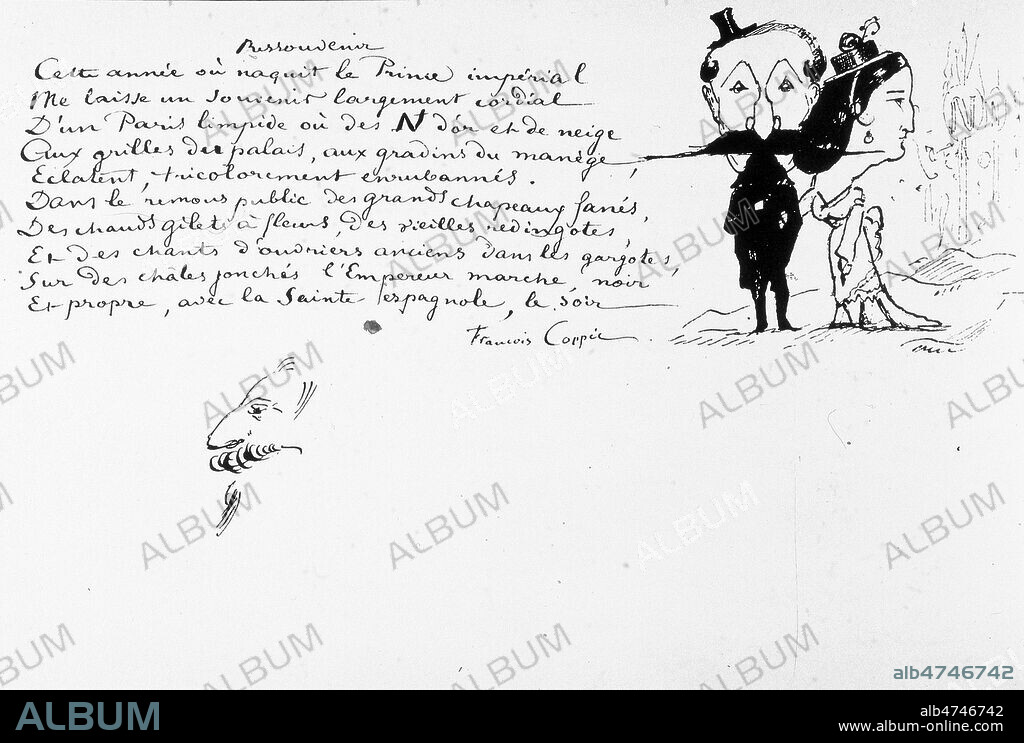 Ressouvenir
Cette année où naquit le Prince impérial
Me laisse un souvenir largement cordial
D'un Paris limpide où des N d'or et de neige
Aux grilles du palais, aux gradins du manège,
Eclatent, tricolorement enrubannés.
Dans le remous public des grands chapeaux fanés,
Des chauds gilets à fleurs, des vieilles redingotes,
Et des chants d'oudriers anciens dans les gargotes,
Sur des châles jonchés l'Empereur marche, noir
Et propre, avec la Sainte espagnole, le soir
François Coppée
N
ALBUM
alb4746742
ALBUM
alb4746742
www.album-online.com